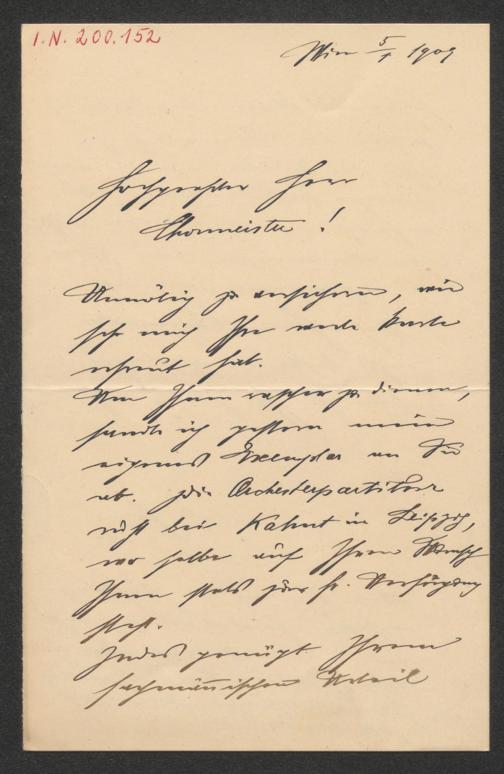 I. N. 200.152
Wien 5/1 1909
Hochgeehrter Herr
Chormeister!
Unnötig zu versichern, wie
sehr mich Ihre werte Karte
erfreut hat.
Um Ihnen rascher zu dienen,
sandte ich gestern mein
eigenes Exemplar an Sie
ab. Die Orchesterpartitur
ruht bei Kahnt in Leipzig,
wo selbe auf Ihren Wunsch
Ihnen stets zur fr. Verfügung
steht.
Indes genügt Ihrem
fachmännischen Urteil